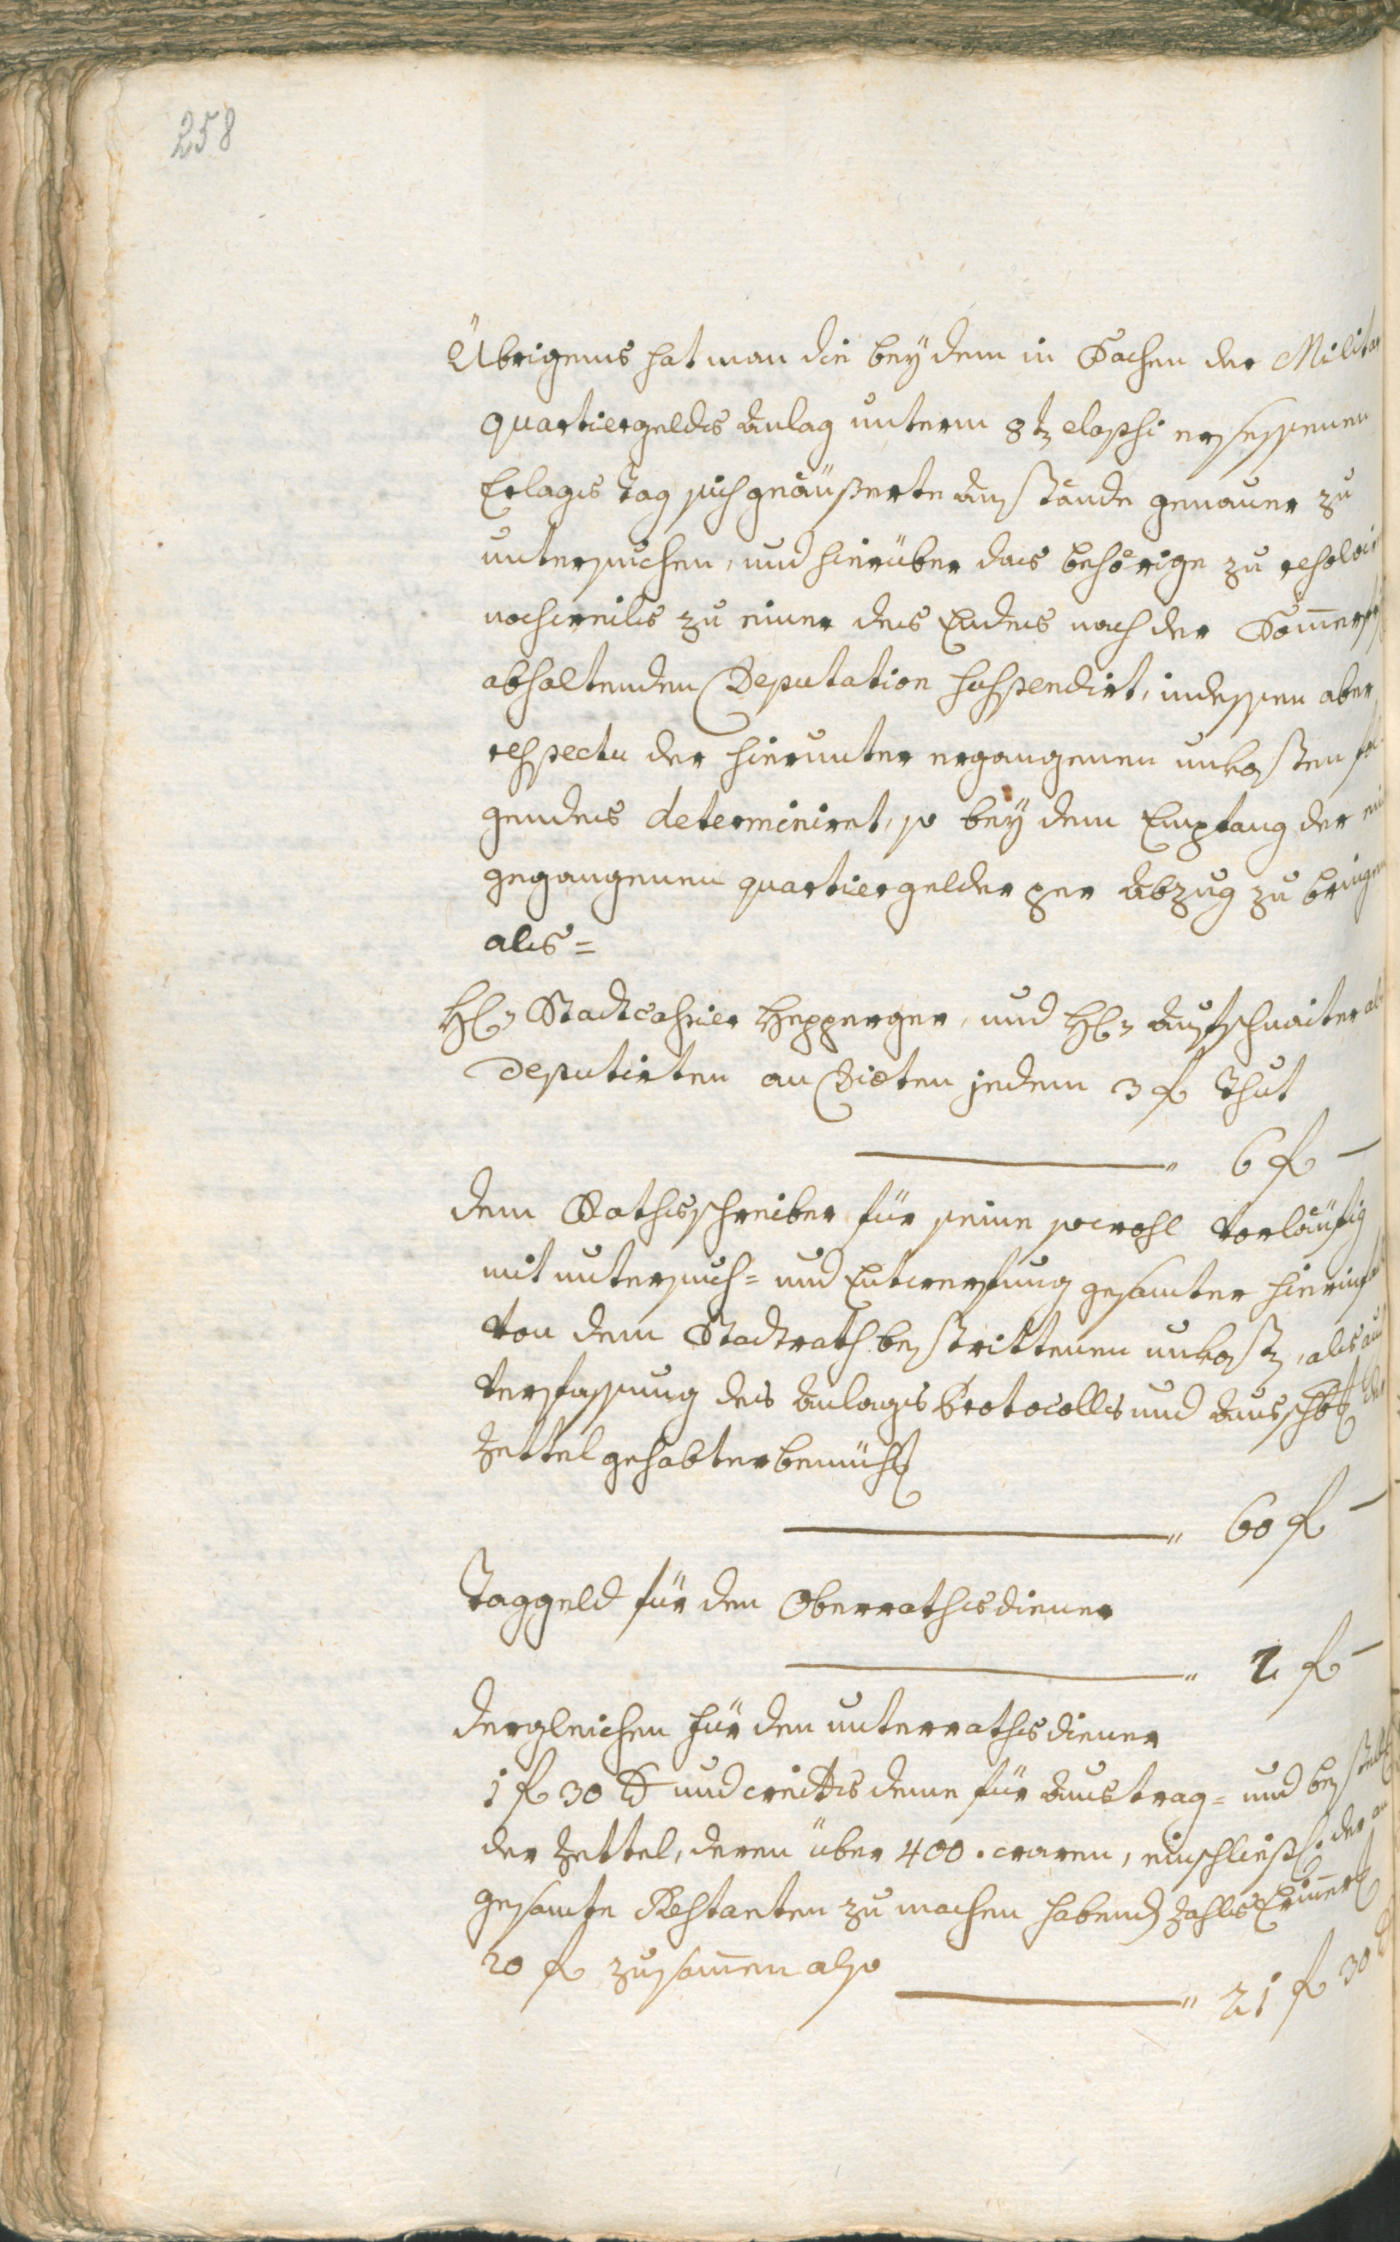 258
Übrigens hat man die bey dem in Sachen der Militar
quartiergelds Anlag unterm 8t elapsi ersessenen
Erlags Tag sich geäußerte Anstände genauer zu
untersuchen, und hierüber das behörige zu resolvir
nochweils zu einer des Endes nach der
abhaltenden Deputation suspendirt, indessen aber
respectu der hierunter ergangenen unkosten fol-
gendes determiniret, so bey dem Empfang der ein
gegangenen quartiergelder per Abzug zu bringen
als =
H: Stadtcassier Hepperger, und H: Aufschnaiter als
Deputirten an Diæten jedem 3 f thut
6 f –
dem Rathsschreiber für seine sowohl vorläufig
mit untersuch- und Entwerfung gesamter hierinfals
von dem Stadtrath bestrittenen unkost, als auch
Verfassung des Anlags Protocolls und
Zettel gehabter bemüh
60 f –
Taggeld für den Oberrathsdiener
2 f –
dergleichen für den unterrathsdiener
1 f 30 und weitters deme für Austrag- und
der Zettel, deren über 400. waren, einschließ: der an
gesamte Restanten zu machen habend Zahls
20 f zusamen also
21 f 30